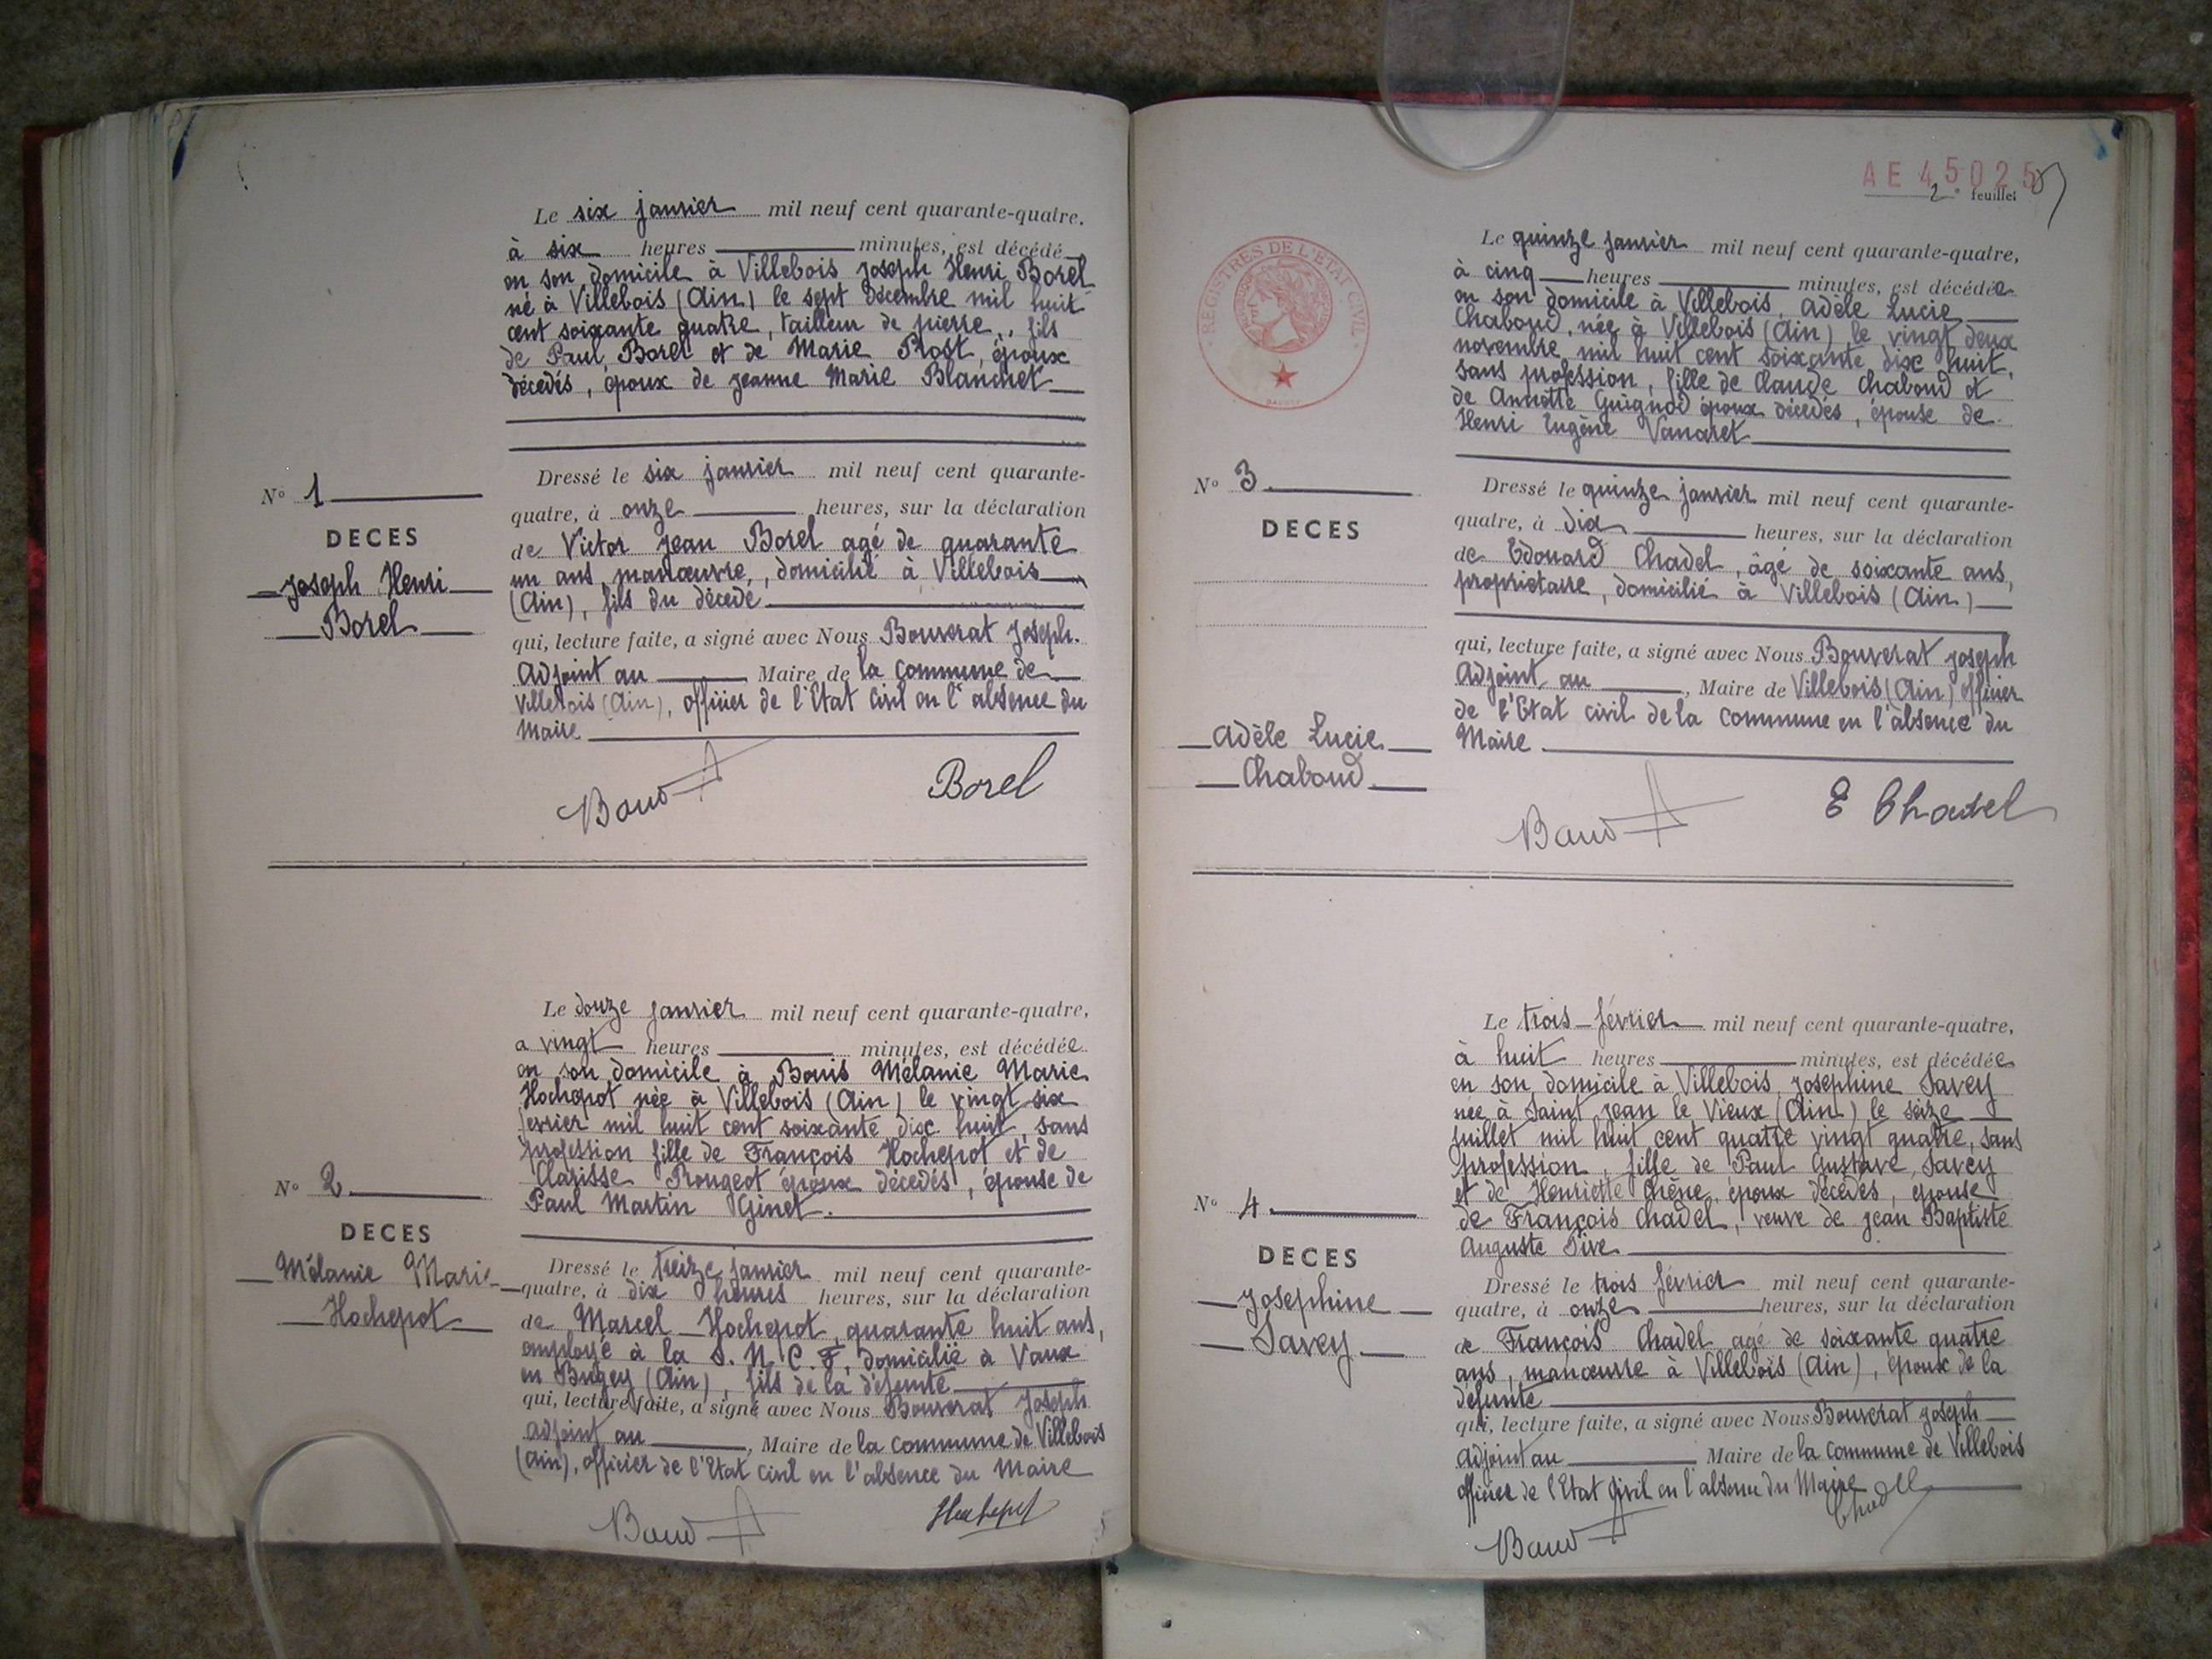 Le six janvier mil neuf cent quarante-quatre.
à six heures minutes, est décédé
en son domicile à Villebois Joseph Henri Borel
né à Villebois (Ain) le sept décembre mil huit
cent soixante quatre, tailleur de pierre, fils
de Paul Borel et de Marie Prost, époux
décédés, époux de Jeanne Marie Blanchet
Nº 1
DECES
Joseph Henri
Borel
Dressé le six janvier mil neuf cent quarante-
quatre, à onze heures, sur la déclaration
de Victor Jean Borel agé de quarante
un ans, manœuvre, domicilié à Villebois
(Ain), fils du décédé
qui, lecture faite, a signé avec Nous Bouverat Joseph.
Adjoint au Maire de la commune de
Villebois (Ain), officier de l'Etat Civil en l'absence du
Maire
Borel
Le douze janvier mil neuf cent quarante-quatre,
a vingt heures minutes, est décédée
en son domicile à Bouis Mélanie Marie
Hochepot née à Villebois (Ain) le vingt six
fevrier mil huit cent soixante dix huit, sans
profession fille de François Hochepot et de
Clarisse Rougeot époux décédés, épouse de
Paul Martin Ginet.
Nº 2
DECES
Mélanie Marie
Hochepot
Dressé le treize janvier mil neuf cent quarante-
quatre, à dix heures heures, sur la déclaration
de Marcel Hochepot, quarante huit ans,
employé à la S.N.C.F, domicilié à Vaux
en Bugey (Ain), fils de la défunte
qui, lecture faite, a signé avec Nous Bouverat Joseph
adjoint au , Maire de la commune de Villebois
(Ain), officier de l'Etat civil en l'absence du Maire
Hochepot
AE 45025
2e feuillet
REGISTRES DE L'ETAT CIVIL
Le quinze janvier mil neuf cent quarante-quatre,
à cinq heures minutes, est décédée
en son domicile à Villebois, Adèle Lucie
Chaboud, née à Villebois (Ain) le vingt deux
novembre mil huit cent soixante dix huit,
sans profession, fille de Claude Chaboud et
de Annette Guignod époux décédés, épouse de
Henri Eugène Vanaret
Nº 3.
DECES
Adèle Lucie
Chaboud
Dressé le quinze janvier mil neuf cent quarante-
quatre, à dix heures, sur la déclaration
de Edouard Chadel, âgé de soixante ans,
propriétaire, domicilié à Villebois (Ain)
qui, lecture faite, a signé avec Nous Bouverat Joseph
Adjoint au , Maire de Villebois (Ain) officier
de l'Etat civil de la commune en l'absence du
Maire
E Chadel
Le trois février mil neuf cent quarante-quatre,
à huit heures minutes, est décédée
en son domicile à Villebois, Josephine Savey
née à Saint Jean le Vieux (Ain) le seize
juillet mil huit cent quatre vingt quatre, sans
profession, fille de Paul Gustave Savey
et de Henriette Chêne, époux décédés, épouse
de François Chadel, veuve de Jean Baptiste
Auguste Dive
Nº 4.
DECES
Josephine
Savey
Dressé le trois février mil neuf cent quarante-
quatre, à onze heures, sur la déclaration
de François Chadel agé de soixante quatre
ans, manœuvre à Villebois (Ain), époux de la
défunte
qui, lecture faite, a signé avec Nous Bouverat Joseph
Adjoint au Maire de la commune de Villebois
officier de l'Etat Civil en l'absence du Maire
Chadel